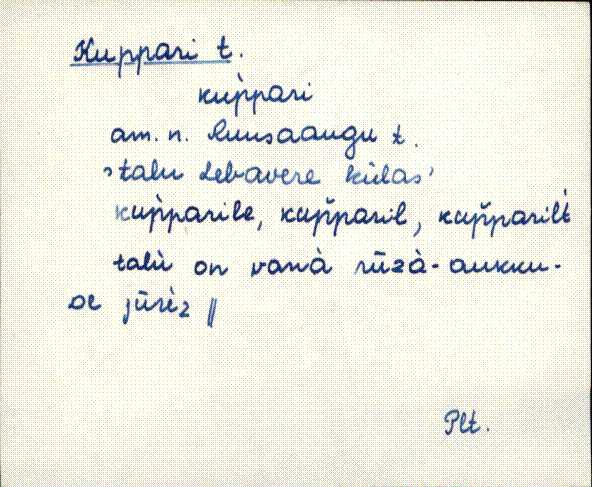 Kuppari t.
kup̀pari
am. n. Ruusaaugu t.
'talu Lebavere külas'
kup̀parile, kup̆paril, kup̆parilt
talù on vanà rūzà-aukku-
de jūrèz ||
Plt.